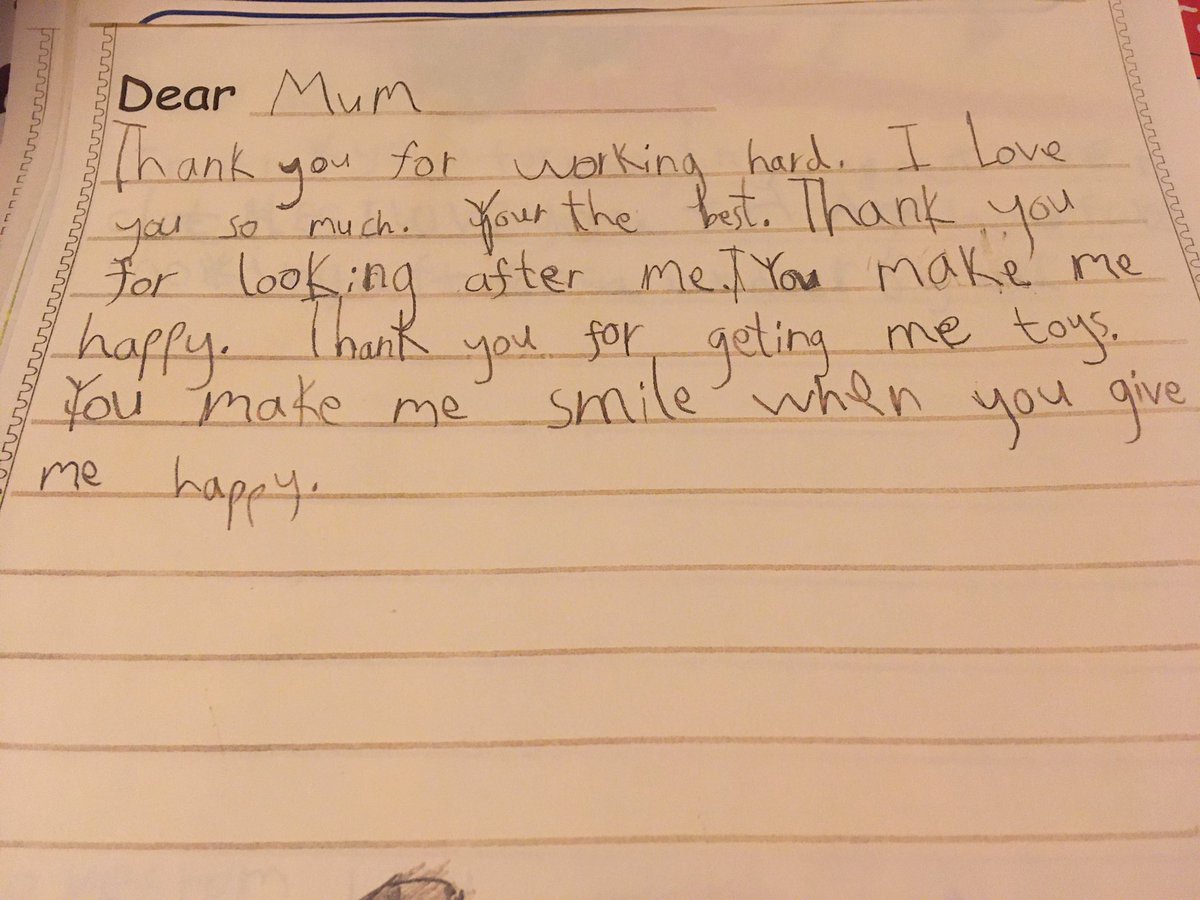 Dear Mum
Thank you for working hard. I Love
you so much. Your the best. Thank you
for looking after me. You make me
happy. Thank you for geting me toys.
You make me smile when you give
me happy.